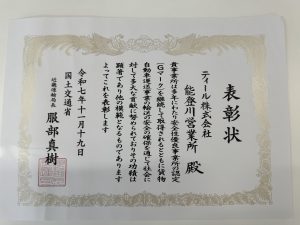 表彰状
ティール株式会社
能登川営業所 殿
貴事業所は多年にわたり安全性優良事業所の認定
(Gマーク)を継続して取得されるとともに貨物
自動車運送事業の輸送の安全の確保を通して社会に
対して多大な貢献に努められておりその功績は
顕著であり他の模範となるものであります
よってこれを表彰します
令和七年十一月十九日
国土交通省
近畿運輸局長
服部真樹